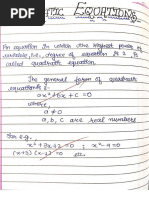 TIC EQUATIONS
An equation in which the highest power of
variable, i.e., degree of equation is 2, is
called quadratic equation.
The general form of quadratic
equation is.
ax²+bx + C = 0
where,
a ≠ 0
a, b, c are real numbers
For e.g.,
x²+9x+2 = 0 ; x²-9 = 0
(x+3) (x-2) = 0 etc.